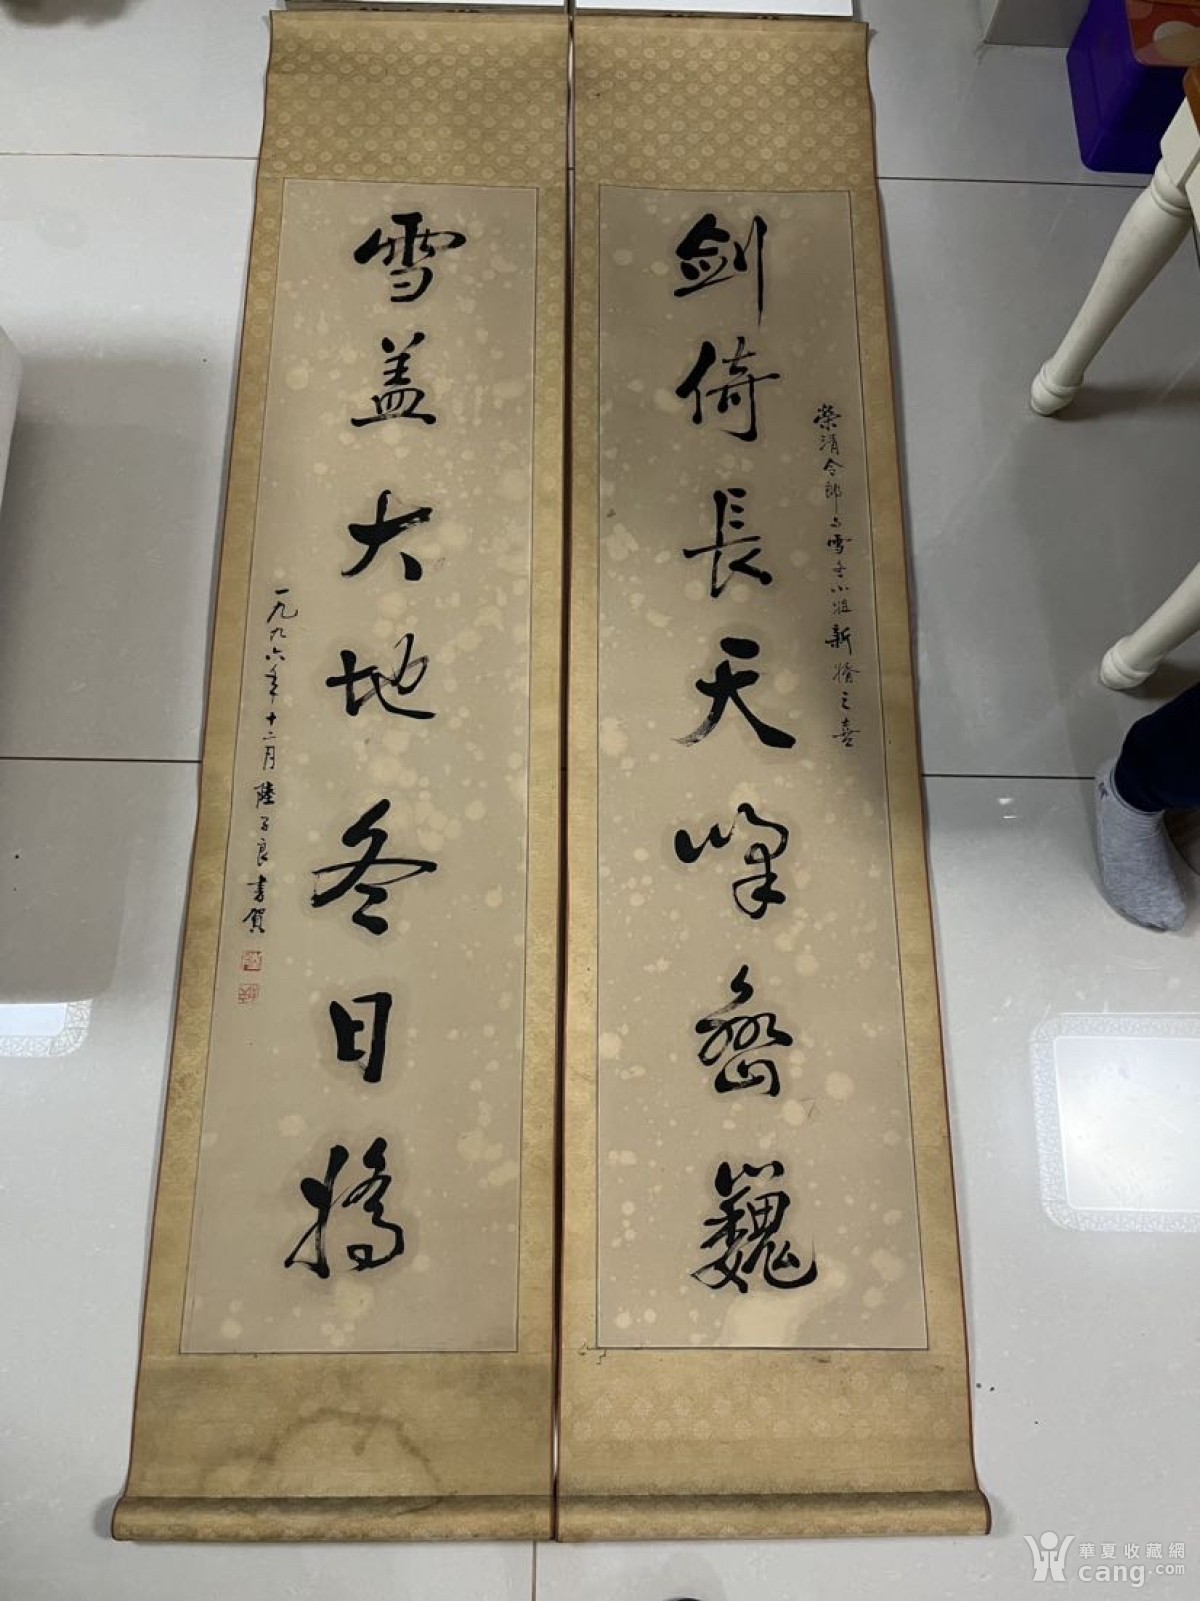 榮清令郎与雪冬小姐新婚之喜
剑倚長天峰巒巍
雪盖大地冬日嬌
一九九六年十二月陸子良書賀
華夏收藏網
cang.com